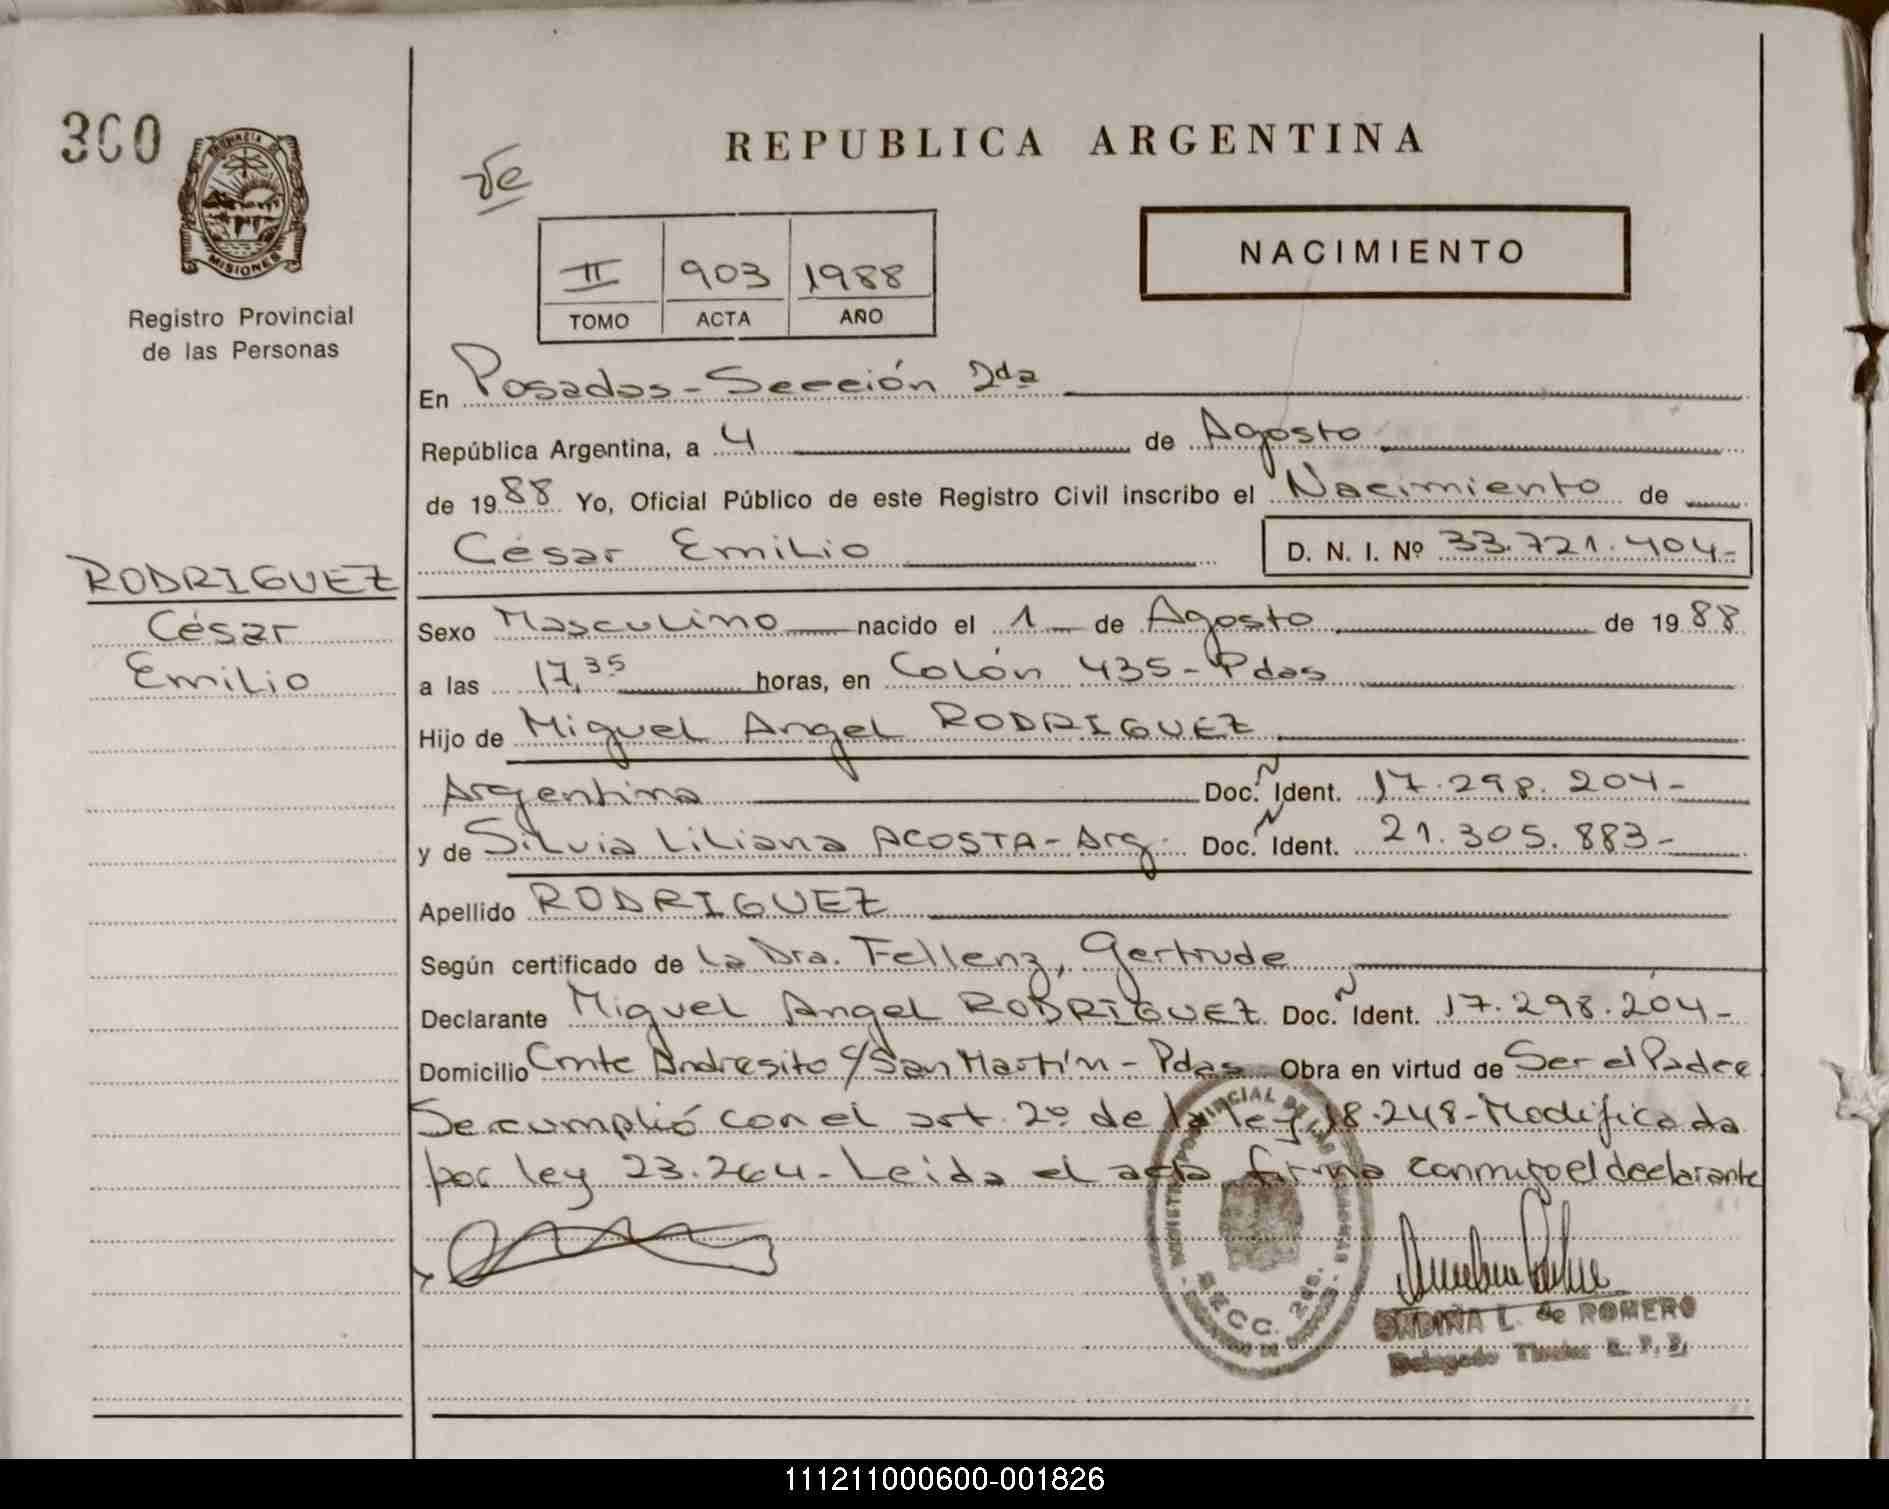 300
PROVINCIA DE
MISIONES
Registro Provincial
de las Personas
REPUBLICA ARGENTINA
NACIMIENTO
II 903 1988
TOMO ACTA AÑO
En Posadas-Sección 2da
República Argentina, a 4 de Agosto
de 1988 Yo, Oficial Público de este Registro Civil inscribo el Nacimiento de
César Emilio D. N. I. Nº 33.721.404-
RODRIGUEZ
César
Emilio
Sexo Masculino nacido el 1 de Agosto de 1988
a las 17,35 horas, en Colón 435-Pdas
Hijo de Miguel Angel RODRIGUEZ
Argentina Doc. Ident. 17.298.204-
y de Silvia Liliana ACOSTA-Arg. Doc. Ident. 21.305.883-
Apellido RODRIGUEZ
Según certificado de La Dra. Fellenz, Gertrude
Declarante Miguel Angel RODRIGUEZ Doc. Ident. 17.298.204-
Domicilio Cmte Andresito c/San Martín-Pdas Obra en virtud de Ser el Padre
Se cumplió con el art. 2º de la ley 18.248-Modificada
por ley 23.264-Leida el acta firma conmigo el declarante
SECC. 2da.
ONDINA L. de ROMERO
Delegado Titular R. P. P.
111211000600-001826